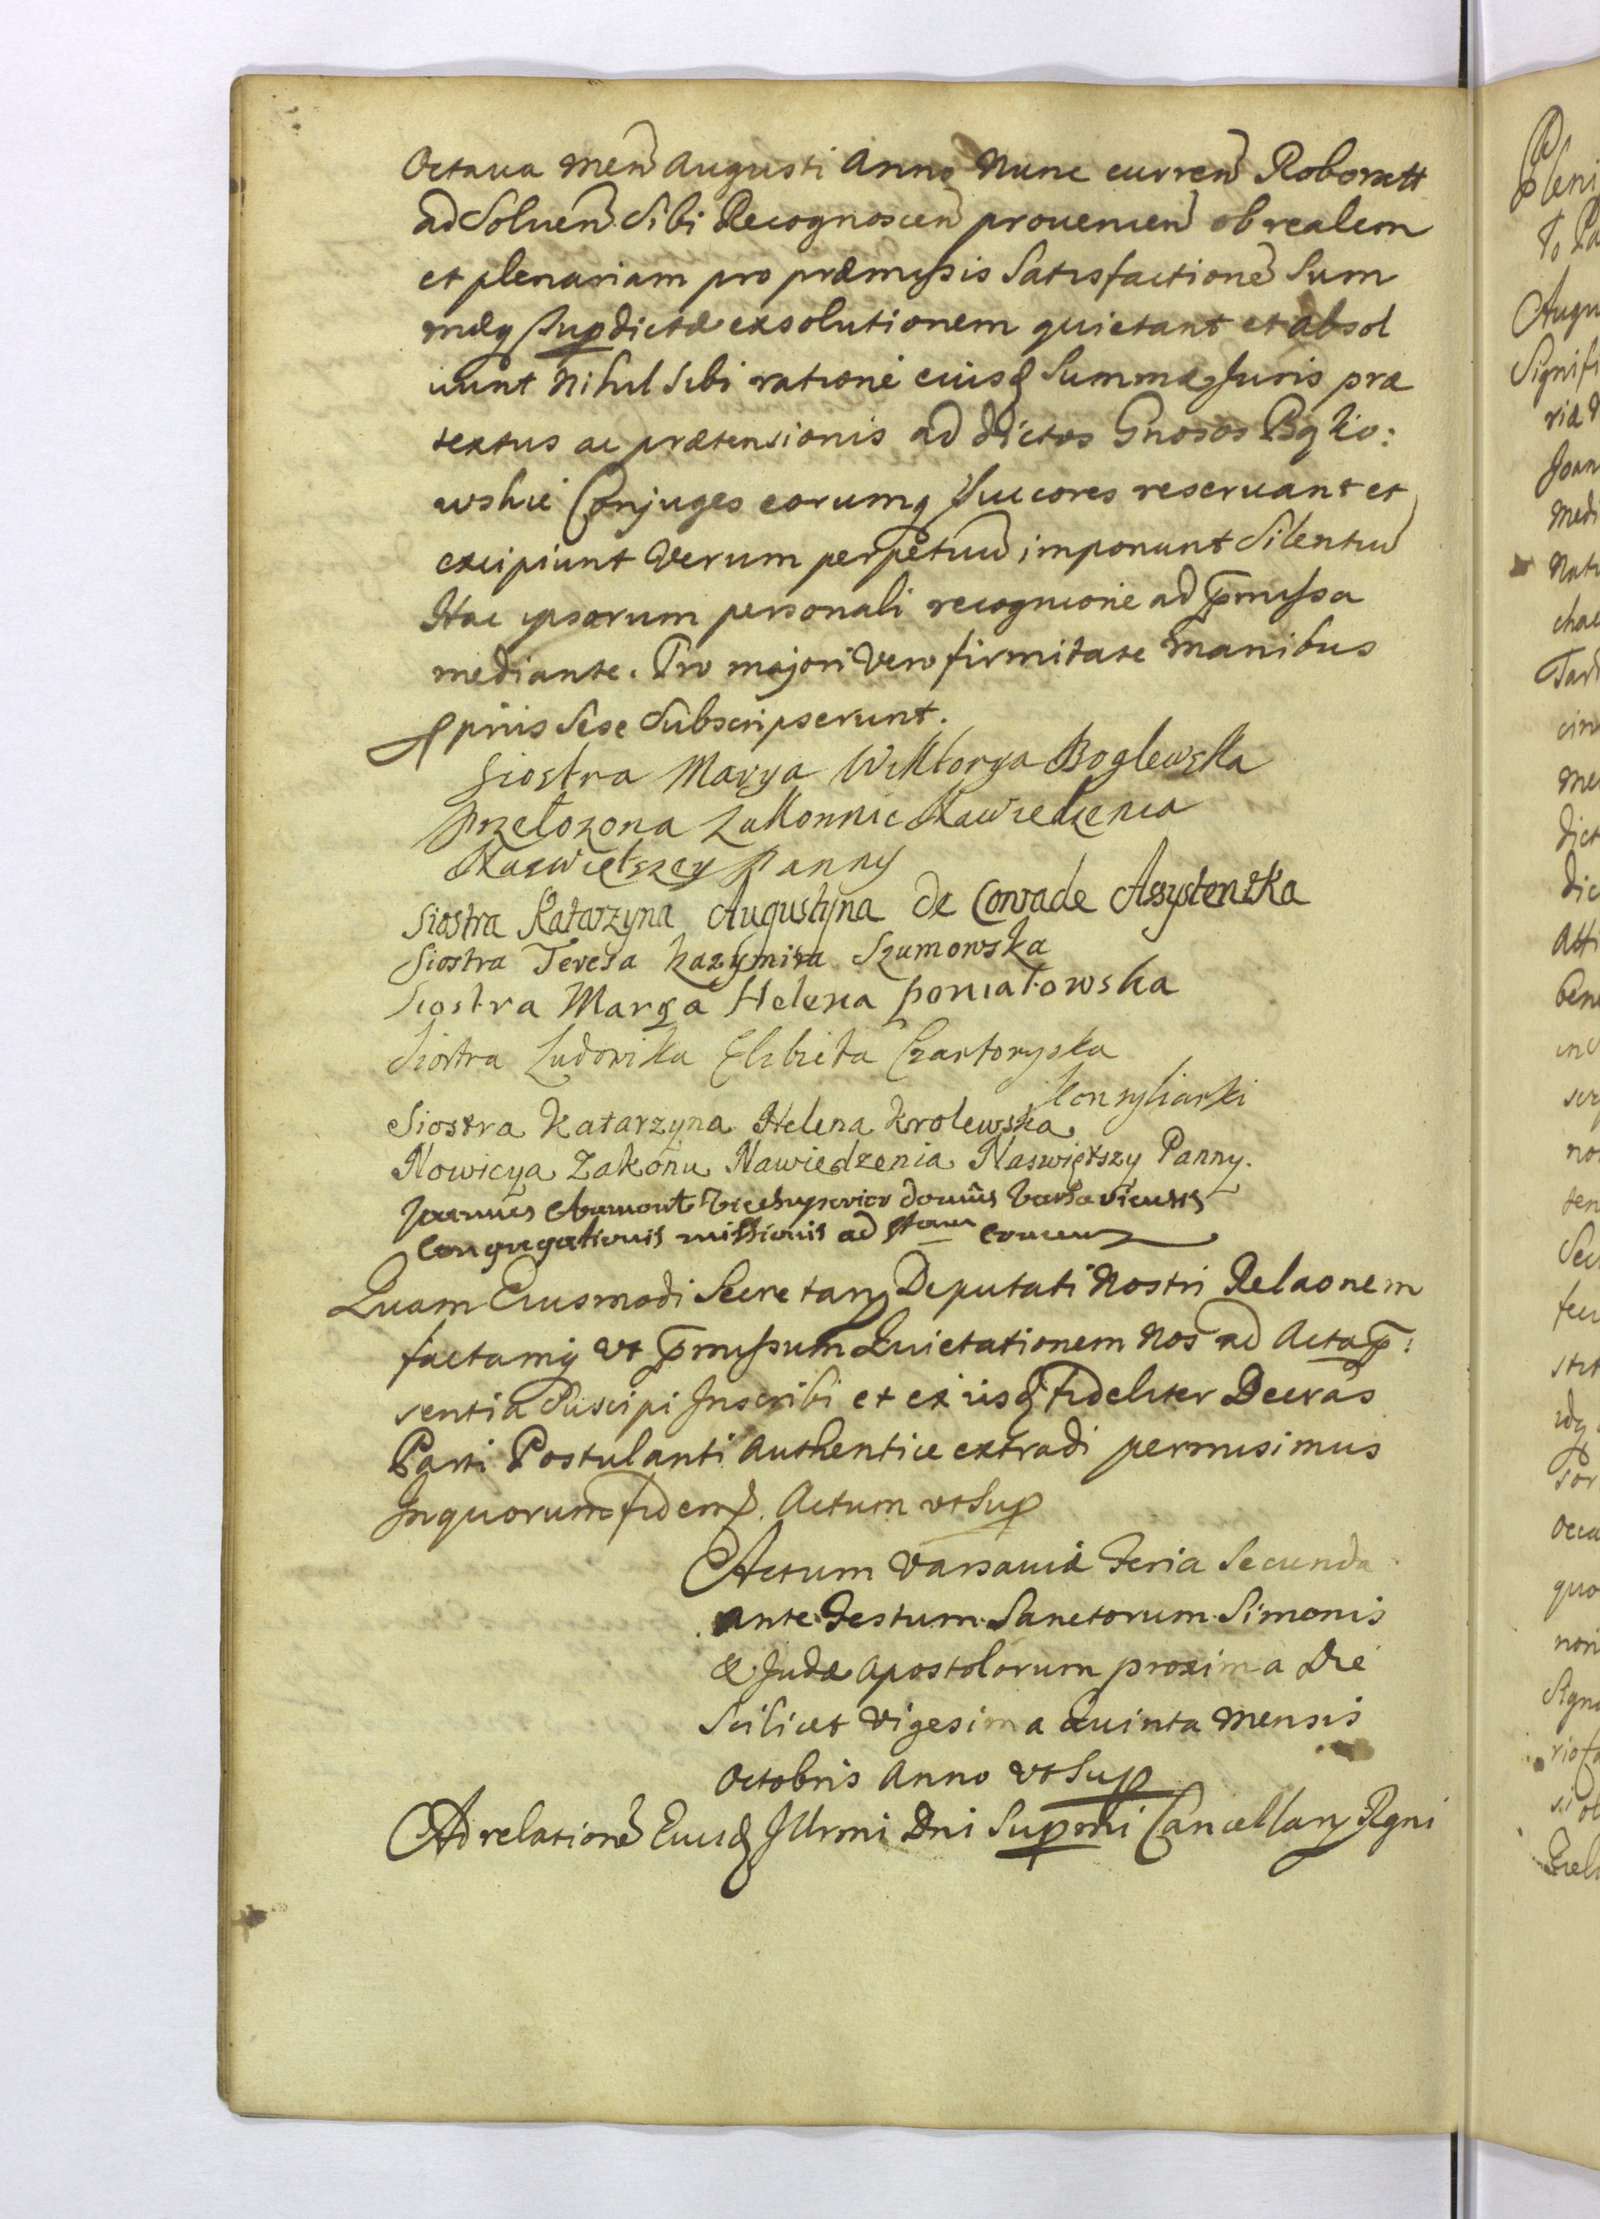 Octaua men Augusti Anno Nunc curren Roboratt
ad Soluen Sibi Recognoscen prouenien ob realem
et plenariam pro præmissis Satisfactione Sum
mæq supdictæ exsolutionem quietant et absol
uunt Nihil Sibi ratione eiusd Summæ Juris præ
textus ac prætensionis ad dictos Gnosos Bgko:
wskie Conjuges eorumq succores reseruant et
excipiunt Verum perpetuu imponunt Silentiu
Hac ipsorum personali recognicione ad pmissa
mediante. Pro majori Vero firmitate Manibus
ppriis Sese Subscripserunt.
Siostra Marya Wiktorya Boglewska
Przełozona zakonnic Nawiedzenia
Naswiętszey Panny
Siostra Katarzyna Augustyna de Conrade Assystentka
Siostra Teresa Kazymira Szumowska
Siostra Marya Helena Poniatowska
Siostra Ludowika Elzbieta Czartoryska
Konsyliarki
Siostra Katarzyna Helena Krolewska
Nowicya Zakonu Nawiedzenia Naswiętszy Panny.
Joannes domus Varsaviensis
Congregationis missionis ad
Quam Eiusmodi Secretary Deputati Nostri Relaonem
factamq vt pmissum Quietationem Nos ad Acta p:
sentia Suscipi Inscribi et ex iisd fideliter Decras
Parti Postulanti Authentice extradi permisimus
In quorum fidem. Actum vt Sup
Actum Varsauiæ Feria Secunda
ante Festum Sanctorum Simonis
& Judæ Apostolorum proxima Die
Scilicet Vigesima Quinta Mensis
Octobris Anno vt Sup
Ad relatione Eiusd Illrmi Dni Supmi Cancellary Regni